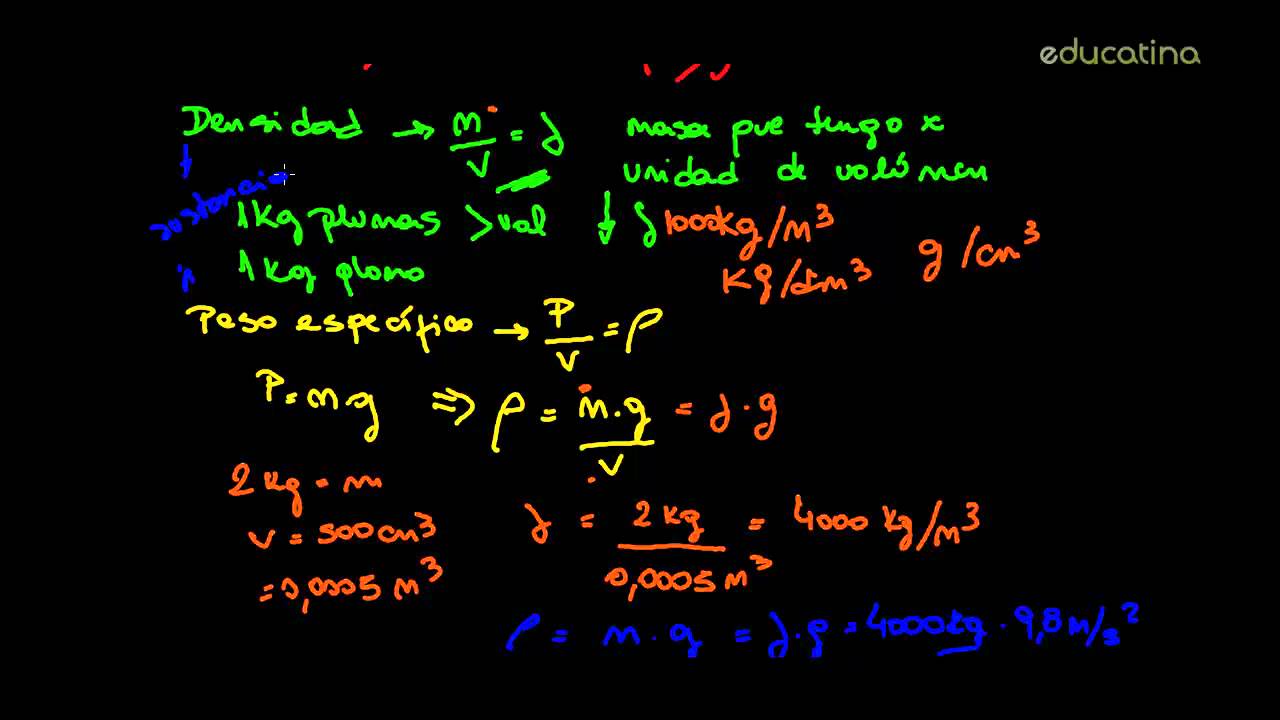 educatina
Densidad → m/v = δ masa que tengo x
unidad de volúmen
sustancia
1kg plumas > vol ↓ δ 1000kg/m³
kg/dm³ g/cm³
1kg plomo
Peso específico → P/v = ρ
P = mg ⇒ ρ = m.g/v = δ.g
2kg = m
v = 500cm³
= 0,0005 m³
δ = 2kg/0,0005m³ = 4000 kg/m³
ρ = m.g = δ.g = 4000kg . 9,8m/s²